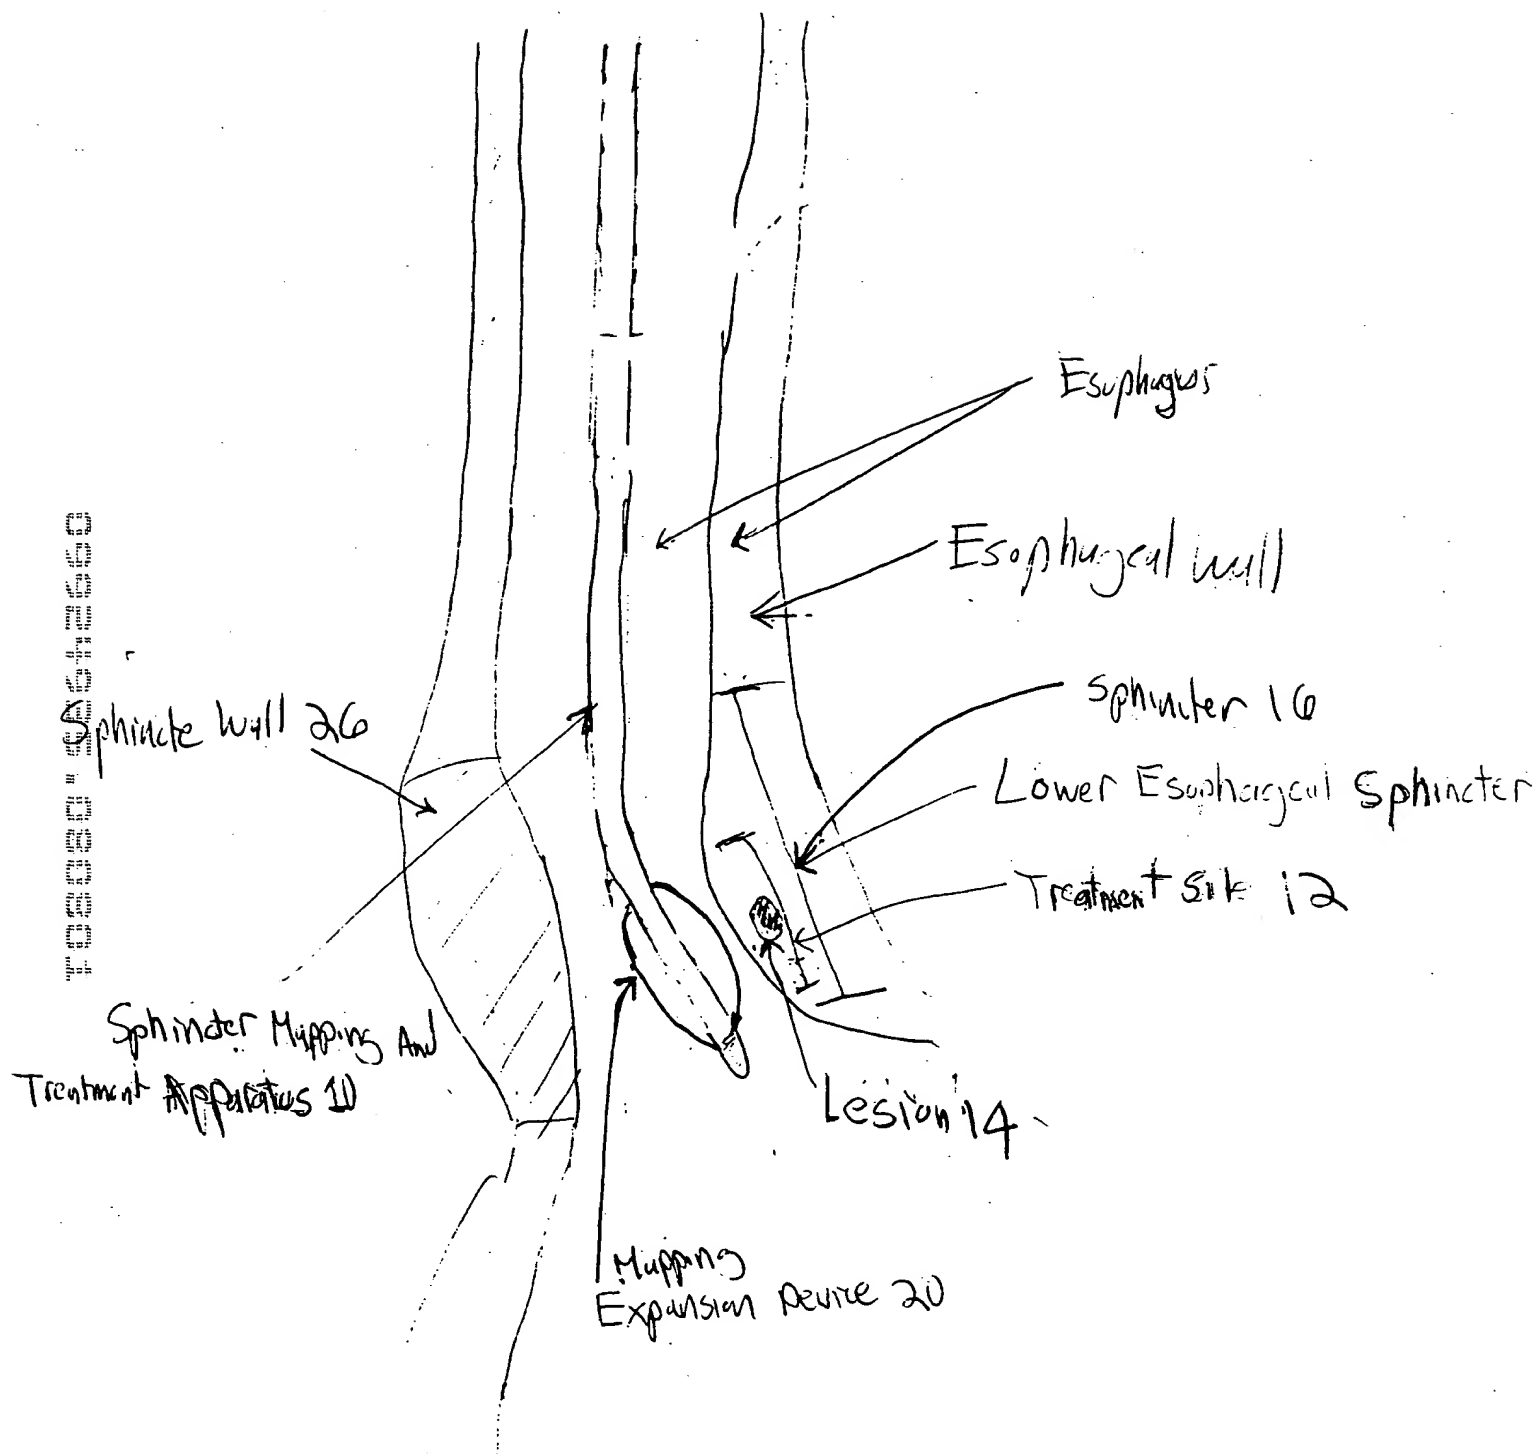 Esophagus
Esophageal Wall
Sphincter 16
Sphincte Wall 26
Lower Esophageal Sphincter
Treatment Site 12
Sphincter Mapping And
Treatment Apparatus 10
Lesion 14
Mapping
Expansion Device 20